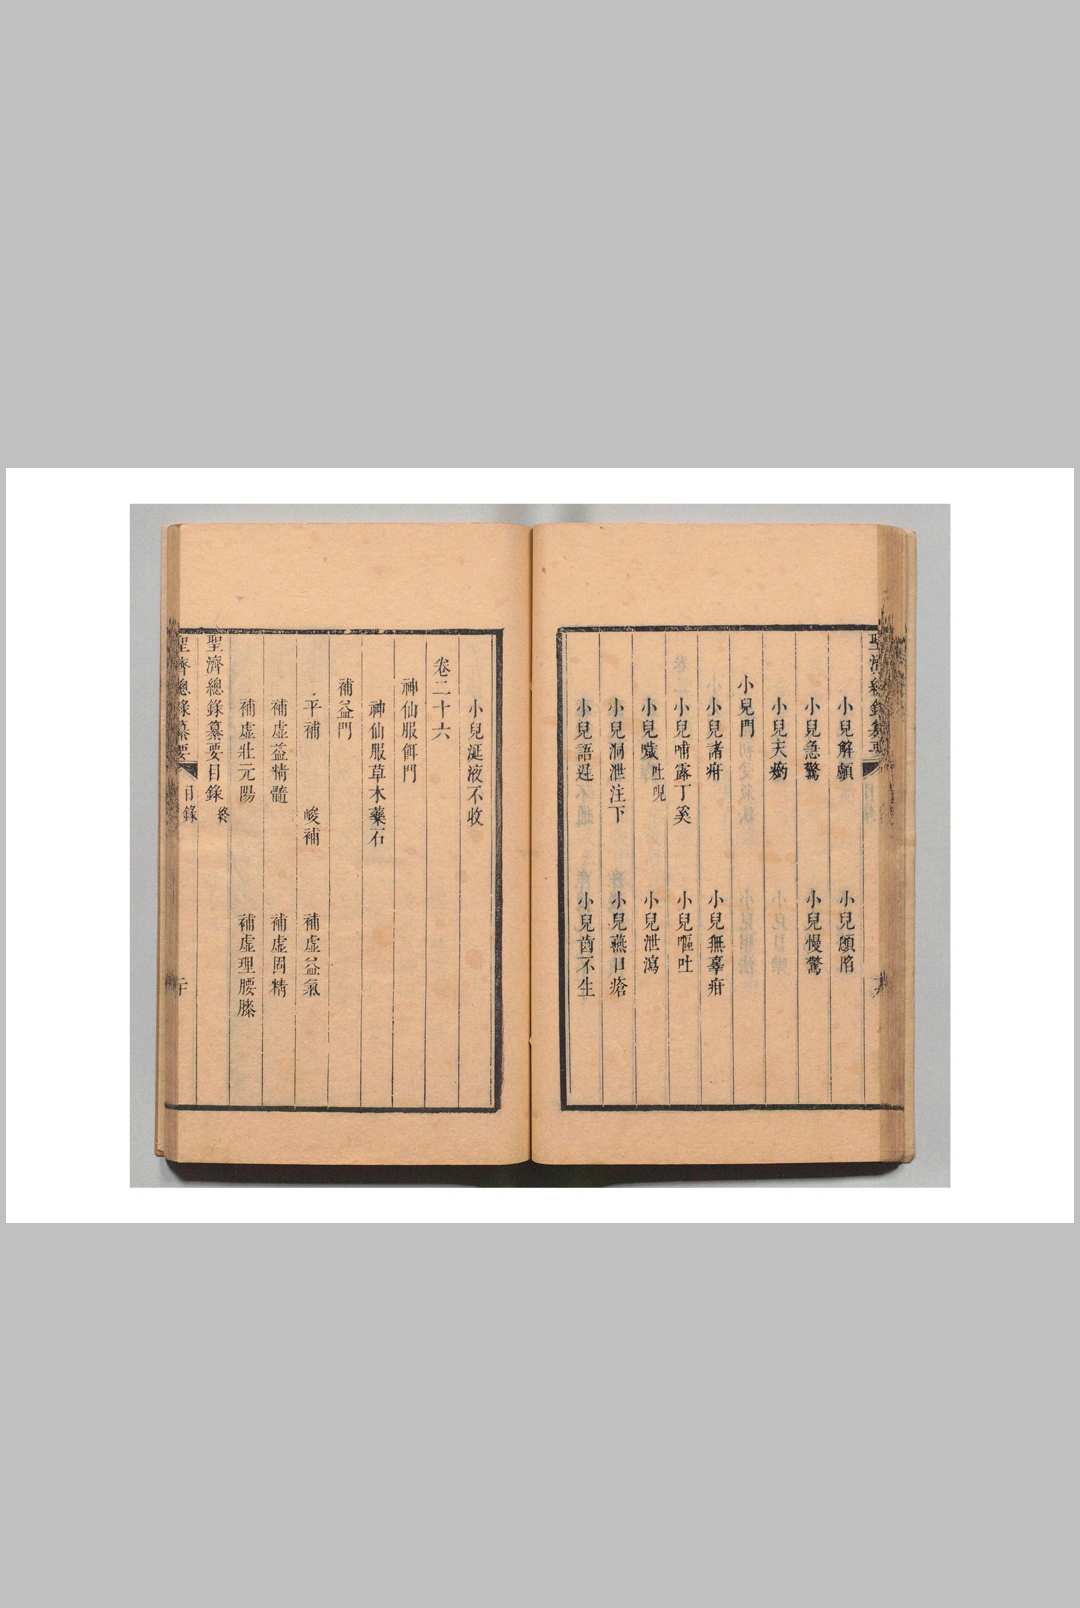 聖濟總錄纂要
小兒解顱 小兒顖陷
小兒急驚 小兒慢驚
小兒天瘹
小兒門
小兒諸疳 小兒無辜疳
小兒哺露丁奚 小兒嘔吐
小兒噦吐呪 小兒泄瀉
小兒洞泄注下 小兒燕口瘡
小兒語遲 小兒齒不生
小兒涎液不收
卷二十六
神仙服餌門
神仙服草木藥石
補益門
平補 峻補 補虛益氣
補虛益精髓 補虛固精
補虛壯元陽 補虛理腰膝
聖濟總錄纂要目錄 終
聖濟總錄纂要 目錄